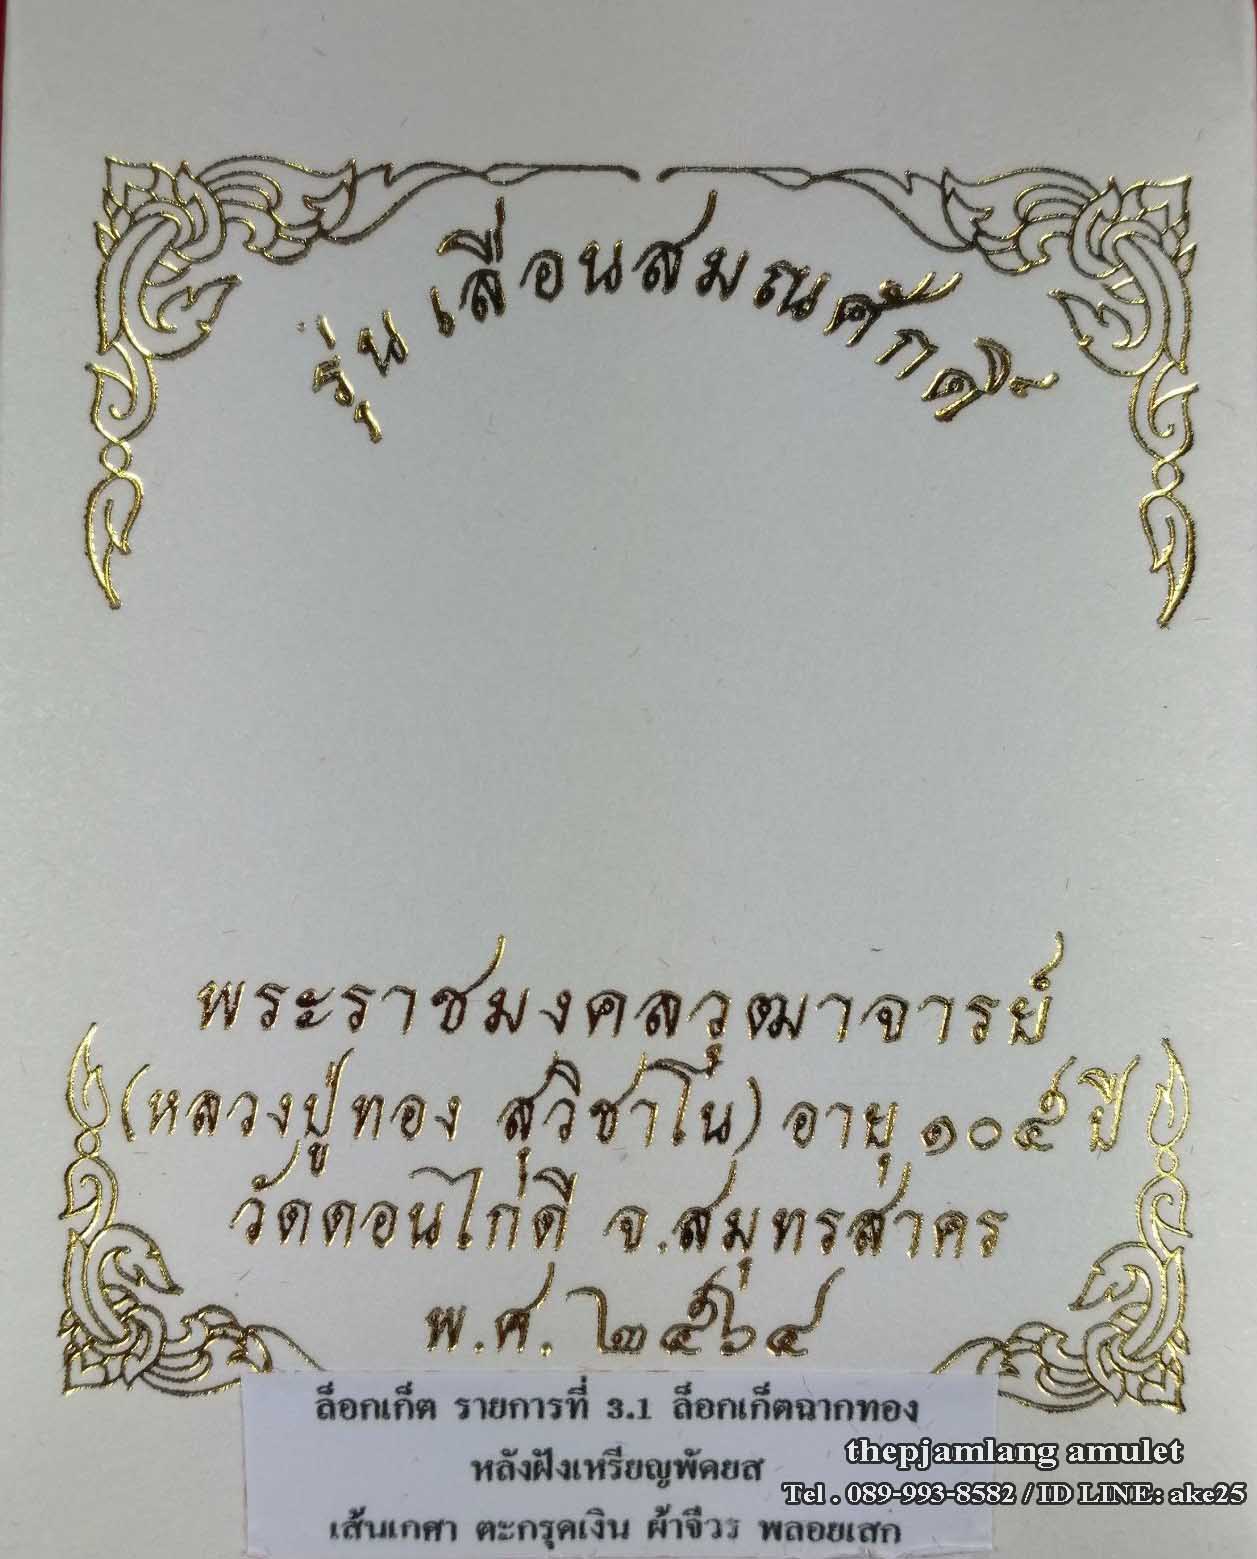 รุ่น เลื่อนสมณศักดิ์
พระราชมงคลวุฒาจารย์
(หลวงปู่ทอง สุวิชาโน) อายุ ๑๐๕ ปี
วัดดอนไก่ดี จ.สมุทรสาคร
พ.ศ. ๒๕๖๔
ล็อกเก็ต รายการที่ 3.1 ล็อกเก็ตฉากทอง
หลังฝังเหรียญพัดยส
เส้นเกศา ตะกรุดเงิน ผ้าจีวร พลอยเสก
thepjamlang amulet
Tel . 089-993-8582 / ID LINE: ake25